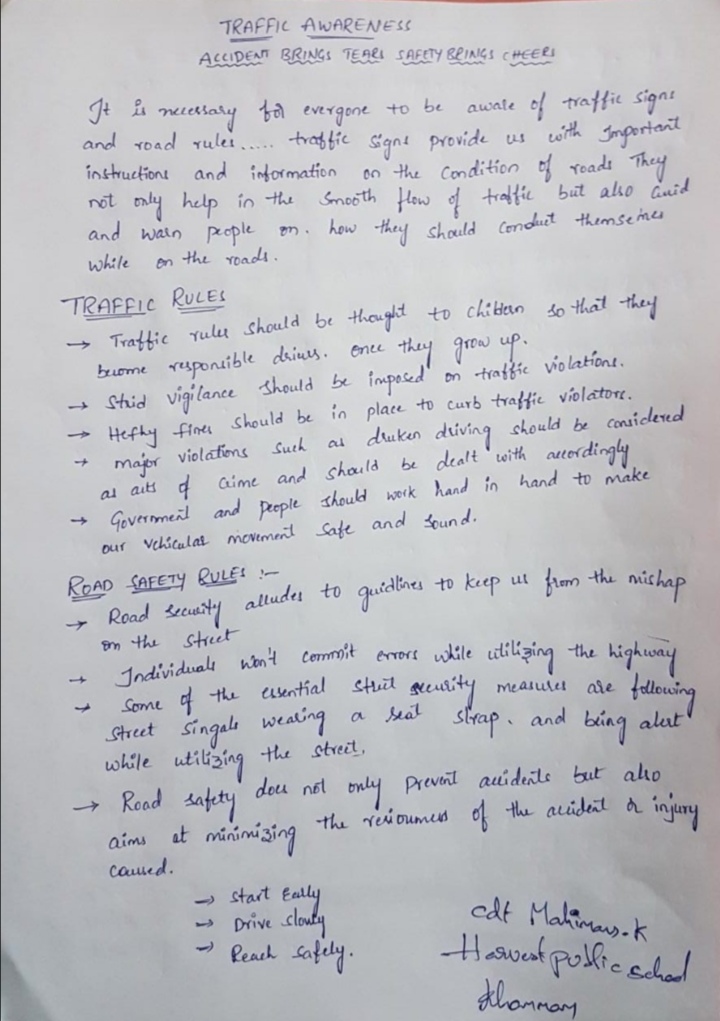 TRAFFIC AWARENESS
ACCIDENT BRINGS TEARS SAFETY BRINGS CHEERS
It is necessary for everyone to be aware of traffic signs
and road rules..... traffic signs provide us with Important
instructions and information on the condition of roads They
not only help in the smooth flow of traffic but also Guid
and warn people on. how they should conduct themselves
while on the roads.
TRAFFIC RULES
→ Traffic rules should be thought to children so that they
become responsible drivers. once they grow up.
→ Strict vigilance should be imposed on traffic violations.
→ Hefty fines should be in place to curb traffic violators.
→ major violations such as druken driving should be considered
as acts of crime and should be dealt with accordingly
→ Government and people should work hand in hand to make
our vehicular movement safe and sound.
ROAD SAFETY RULES :-
→ Road security alludes to guidlines to keep us from the mishap
on the street
→ Individuals won't commit errors while utilizing the highway
→ Some of the essential street security measures are following
street singals wearing a seat strap. and being alert
while utilizing the street.
→ Road safety does not only prevent accidents but also
aims at minimizing the of the accident or injury
caused.
→ Start Early
→ Drive slowly
→ Reach safely.
cdt K
Harvest public school
Khammam